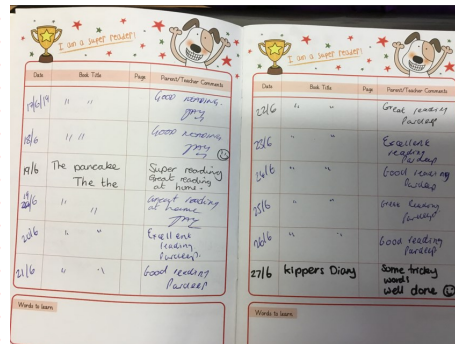 I am a super reader!
Date Book Title Page Parent/Teacher Comments
17/6/19 " " Good reading.
18/6 " " Good reading
19/6 The pancake Super reading
The the Great reading
at home.
" great reading
" at home
20/6 " " Excellent
reading
Pardeep
21/6 " " Good reading
Pardeep
Words to learn
I am a super reader!
Date Book Title Page Parent/Teacher Comments
22/6 " " Great reading
Pardeep
23/6 " " Excellent
reading
Pardeep
24/6 " " Good reading
Pardeep
25/6 " " reading
Pardeep
26/6 " " Good reading
Pardeep
27/6 kippers Diary Some tricky
words
well done
Words to learn